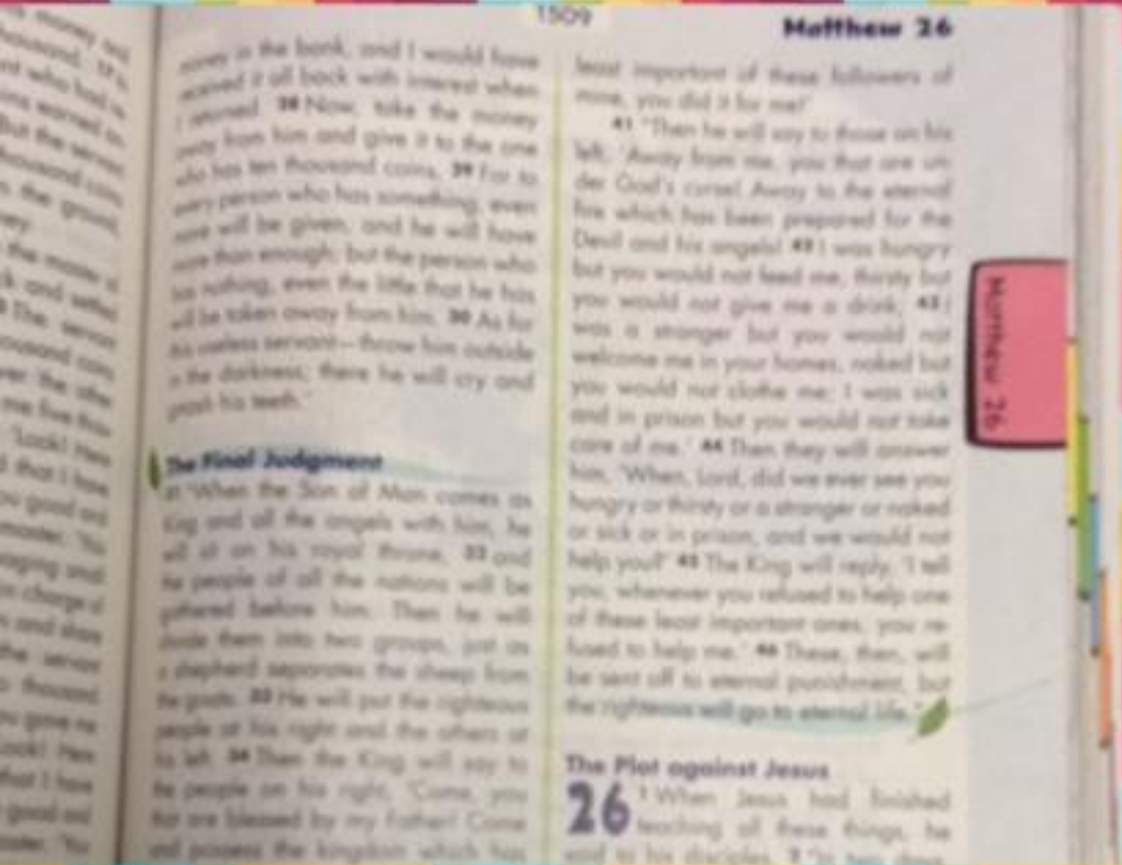 money and
who had
earned
But the servant
thousand coins
the ground
the master of
and settled
The servant
thousand coins
the other
me five
'Look! Here
that I have
good and
in charge of
and share
the servant
thousand
you gave me
Look! Here
that I have
good and
1509
Matthew 26
money in the bank, and I would have
received it all back with interest when
I returned. 28 Now, take the money
away from him and give it to the one
who has ten thousand coins. 29 For to
every person who has something, even
more will be given, and he will have
more than enough; but the person who
has nothing, even the little that he has
will be taken away from him. 30 As for
this useless servant—throw him outside
in the darkness; there he will cry and
gnash his teeth.'
The Final Judgment
31 "When the Son of Man comes as
King and all the angels with him, he
will sit on his royal throne, 32 and
the people of all the nations will be
gathered before him. Then he will
divide them into two groups, just as
a shepherd separates the sheep from
the goats. 33 He will put the righteous
people at his right and the others at
his left. 34 Then the King will say to
the people on his right, 'Come, you
that are blessed by my Father! Come
and possess the kingdom which has
least important of these followers of
mine, you did it for me!'
41 "Then he will say to those on his
left, 'Away from me, you that are un-
der God's curse! Away to the eternal
fire which has been prepared for the
Devil and his angels! 42 I was hungry
but you would not feed me, thirsty but
you would not give me a drink; 43 I
was a stranger but you would not
welcome me in your homes, naked but
you would not clothe me; I was sick
and in prison but you would not take
care of me.' 44 Then they will answer
him, 'When, Lord, did we ever see you
hungry or thirsty or a stranger or naked
or sick or in prison, and we would not
help you?' 45 The King will reply, 'I tell
you, whenever you refused to help one
of these least important ones, you re-
fused to help me.' 46 These, then, will
be sent off to eternal punishment, but
the righteous will go to eternal life."
The Plot against Jesus
26 1 When Jesus had finished
teaching all these things, he
said to his disciples, 2 "In two days
Matthew 26